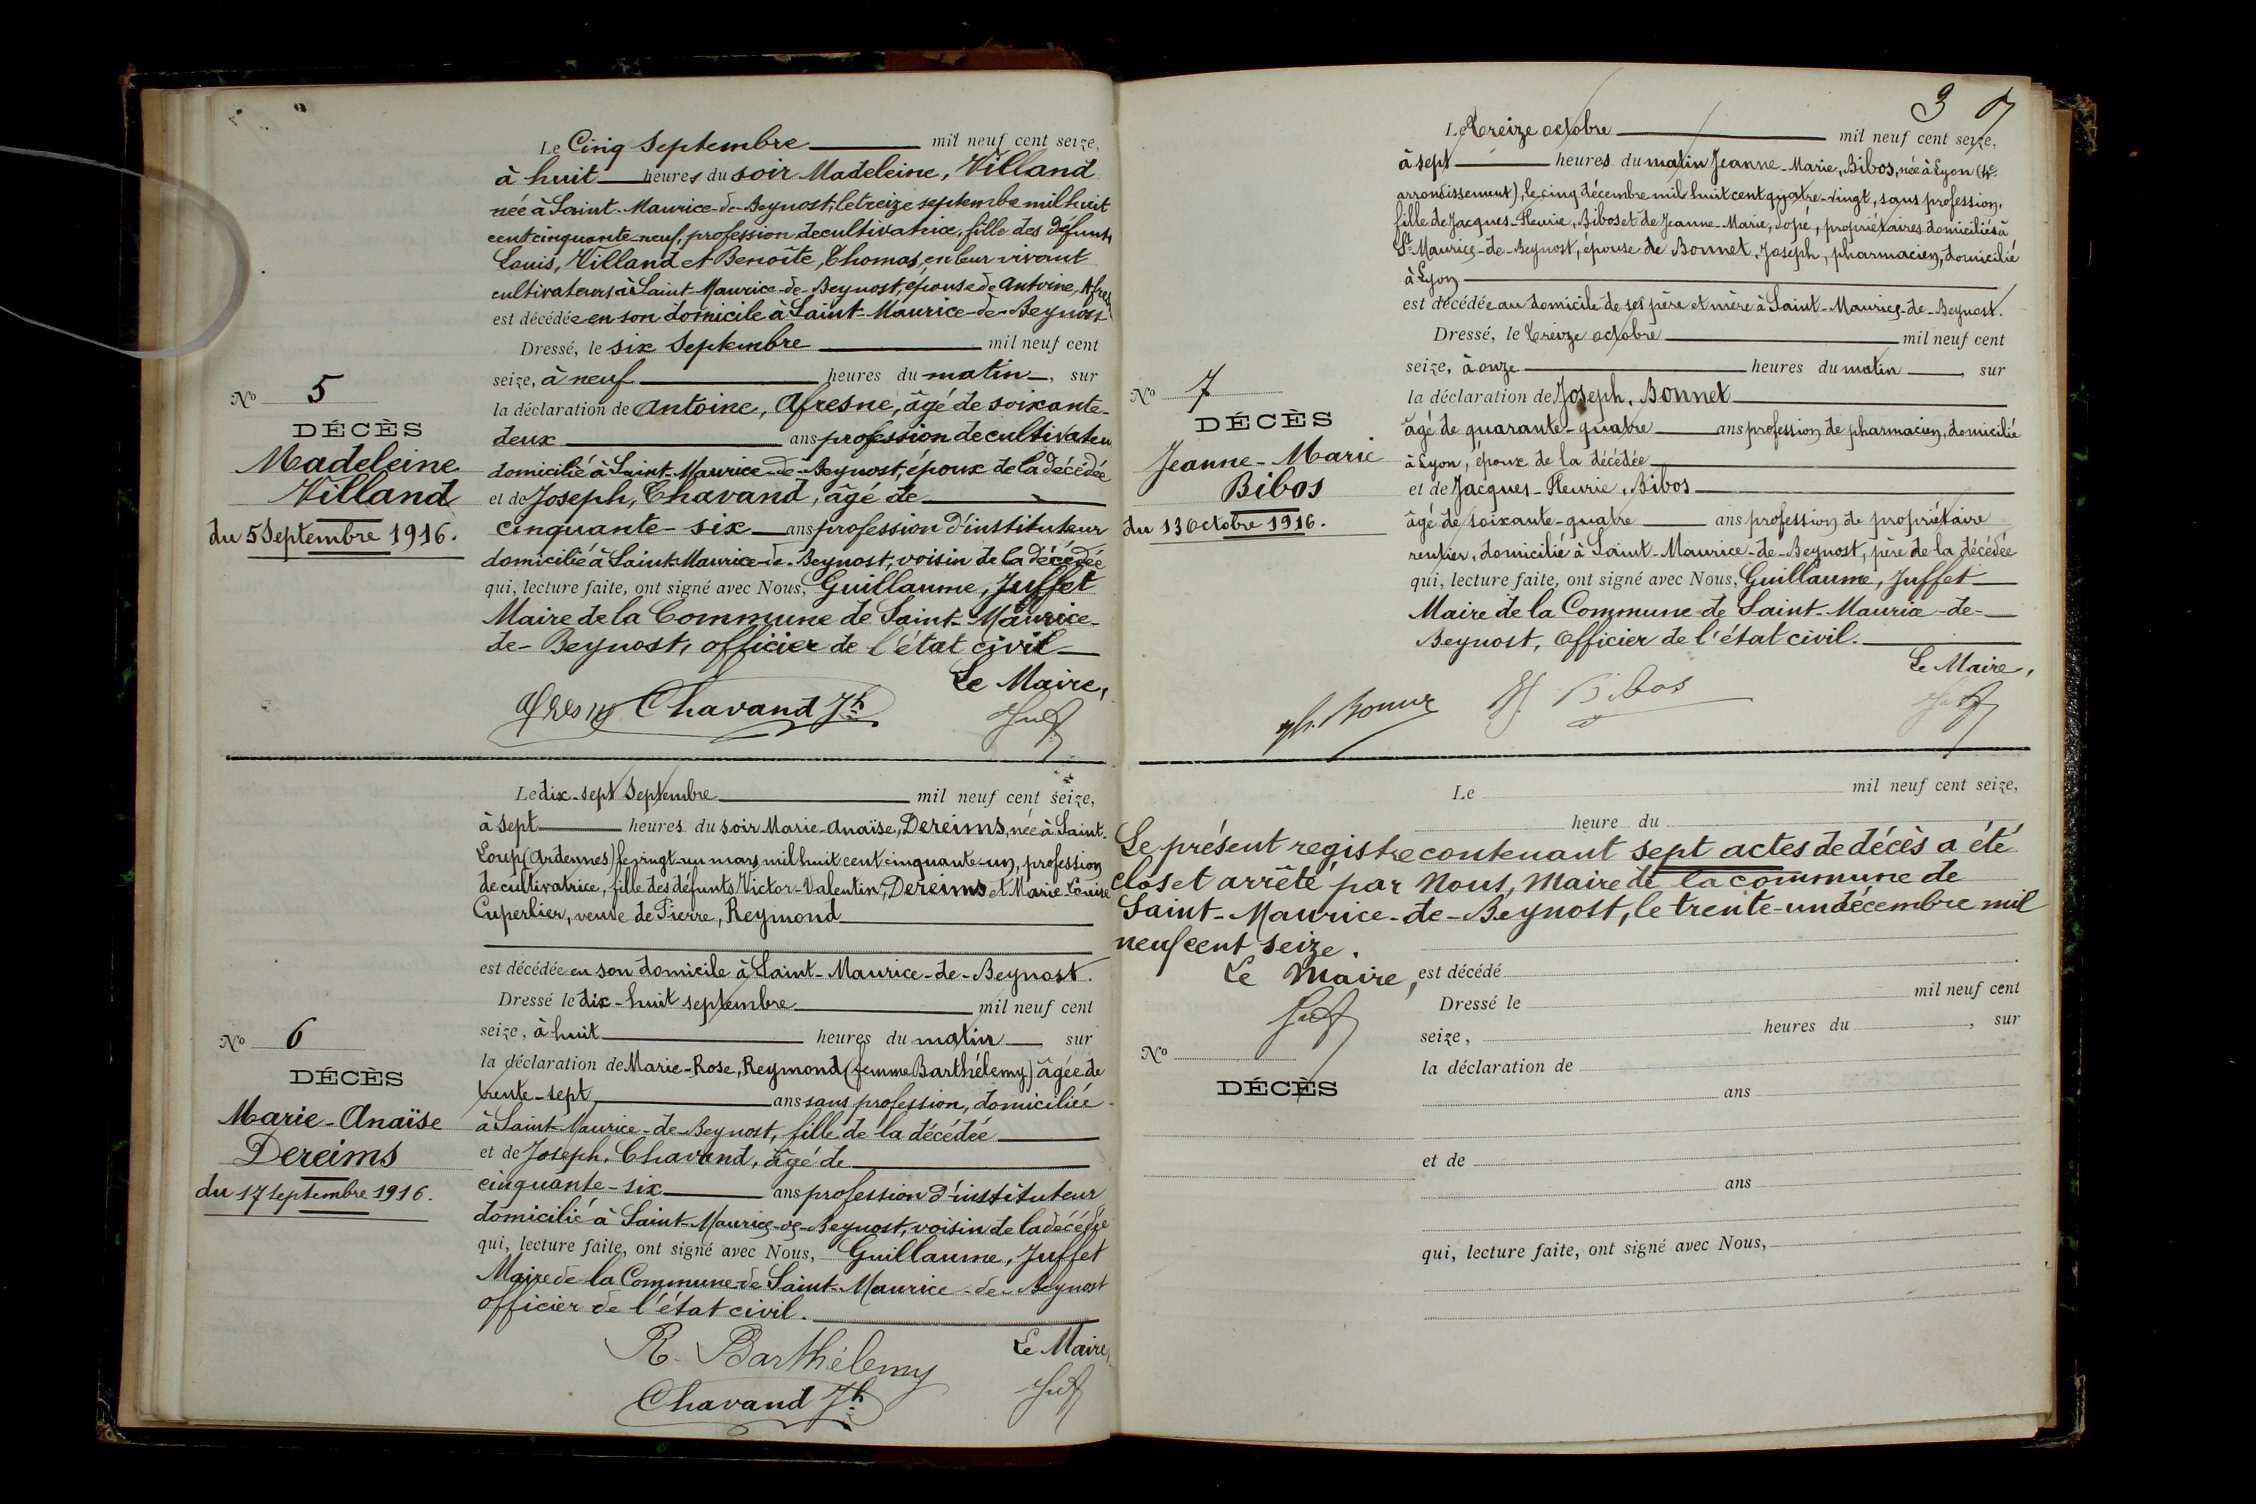 Le Cinq Septembre mil neuf cent seize,
à huit heures du soir Madeleine, Villand
née à Saint-Maurice-de-Beynost, le treize septembre mil huit
cent cinquante-neuf, profession de cultivatrice, fille des défunts
Louis, Villand et Benoîte, Thomas, en leur vivant
cultivateurs à Saint-Maurice-de-Beynost, épouse de Antoine, Afresne
est décédée en son domicile à Saint-Maurice-de-Beynost
Dressé, le six Septembre mil neuf cent
seize, à neuf heures du matin, sur
la déclaration de Antoine, Afresne, âgé de soixante-
deux ans profession de cultivateur
domicilié à Saint-Maurice-de-Beynost, époux de la décédée
et de Joseph, Chavand, âgé de
cinquante-six ans profession d'instituteur
domicilié à Saint-Maurice-de-Beynost, voisin de la décédée
qui, lecture faite, ont signé avec Nous, Guillaume, Juffet
Maire de la Commune de Saint-Maurice-
de-Beynost, officier de l'état civil
Le Maire,
Afresne Chavand Jh
Juf
No 5
DÉCÈS
Madeleine
Villand
du 5 Septembre 1916.
Le dix-sept Septembre mil neuf cent seize,
à sept heures du soir Marie-Anaïse, Dereims, née à Saint-
Loup (Ardennes) le vingt-un mars mil huit cent cinquante-un, profession
de cultivatrice, fille des défunts Victor-Valentin, Dereims et Marie-Louise
Cuperlier, veuve de Pierre, Reymond
est décédée en son domicile à Saint-Maurice-de-Beynost.
Dressé le dix-huit septembre mil neuf cent
seize, à huit heures du matin sur
la déclaration de Marie-Rose, Reymond (femme Barthélemy) âgée de
trente-sept ans sans profession, domiciliée
à Saint-Maurice-de-Beynost, fille de la décédée
et de Joseph, Chavand, âgé de
cinquante-six ans profession d'instituteur
domicilié à Saint-Maurice-de-Beynost, voisin de la décédée
qui, lecture faite, ont signé avec Nous, Guillaume, Juffet
Maire de la Commune de Saint-Maurice-de-Beynost
officier de l'état civil.
Le Maire,
R. Barthélemy
Chavand Jh
Juf
No 6
DÉCÈS
Marie-Anaïse
Dereims
du 17 septembre 1916.
3
Le treize octobre mil neuf cent seize,
à sept heures du matin Jeanne-Marie, Bibos, née à Lyon (4e
arrondissement), le cinq décembre mil huit cent quatre-vingt, sans profession,
fille de Jacques-Fleurie, Bibos et de Jeanne-Marie, Dopé, propriétaires domiciliés à
St-Maurice-de-Beynost, épouse de Bonnet, Joseph, pharmacien, domicilié
à Lyon
est décédée au domicile de ses père et mère à Saint-Maurice-de-Beynost.
Dressé, le treize octobre mil neuf cent
seize, à onze heures du matin, sur
la déclaration de Joseph, Bonnet
âgé de quarante-quatre ans profession de pharmacien, domicilié
à Lyon, époux de la décédée
et de Jacques-Fleurie, Bibos
âgé de soixante-quatre ans profession de propriétaire
rentier, domicilié à Saint-Maurice-de-Beynost, père de la décédée
qui, lecture faite, ont signé avec Nous, Guillaume, Juffet
Maire de la Commune de Saint-Maurice-de-
Beynost, Officier de l'état civil.
Le Maire,
Jh. Bonnet Bibos
Juf
No 7
DÉCÈS
Jeanne-Marie
Bibos
du 13 Octobre 1916.
Le mil neuf cent seize,
heure du
Le présent registre contenant sept actes de décès a été
clos et arrêté par Nous, Maire de la commune de
Saint-Maurice-de-Beynost, le trente-un décembre mil
neuf cent seize.
Le Maire,
Juf
est décédé
Dressé le mil neuf cent
seize, heures du , sur
No
DÉCÈS
la déclaration de
ans
et de
ans
qui, lecture faite, ont signé avec Nous,